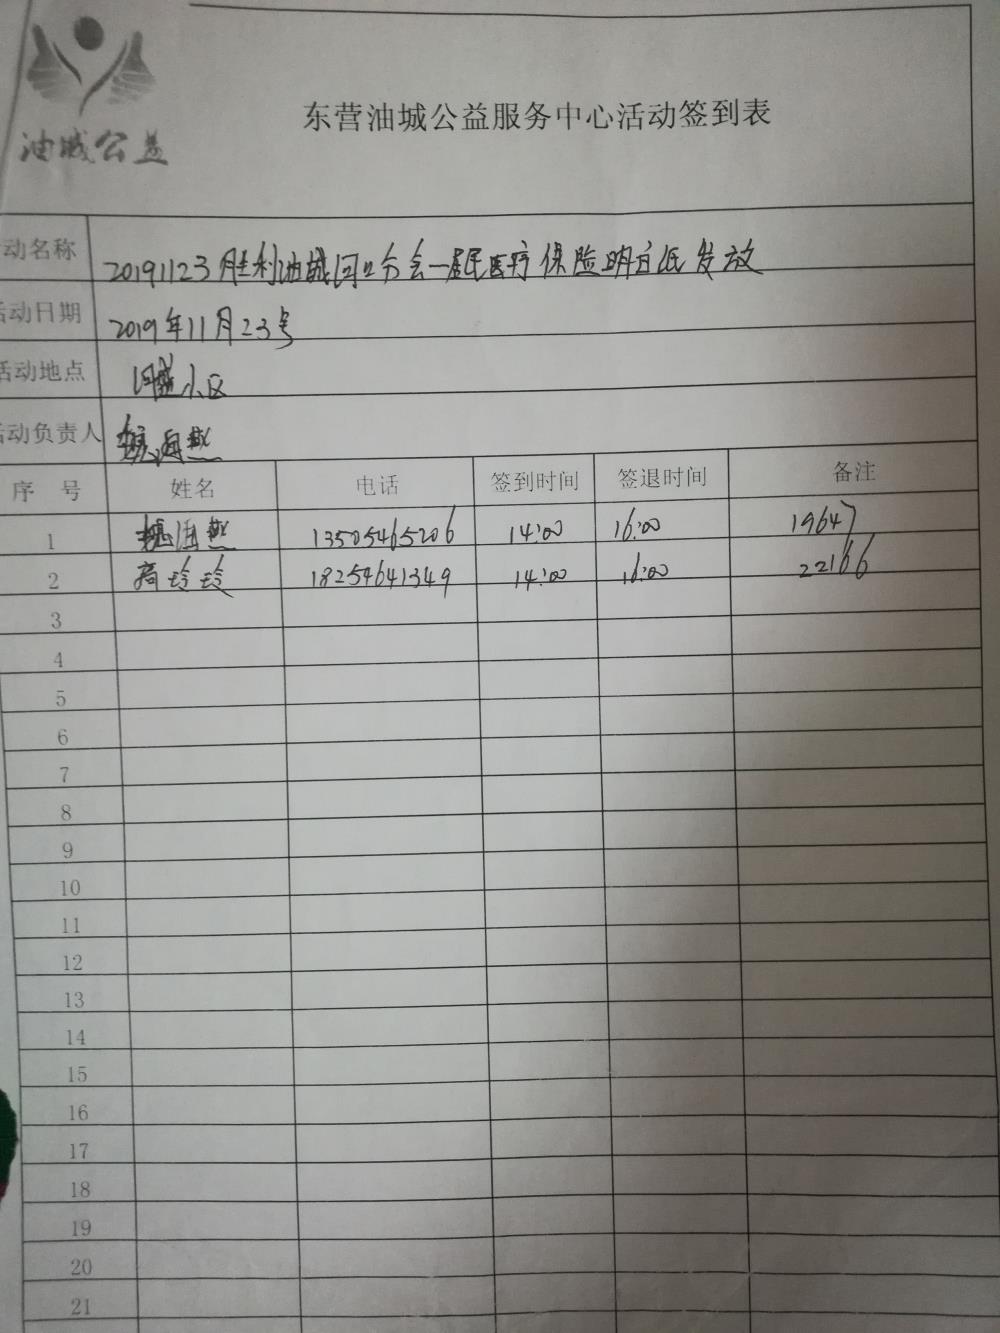 油城公益
东营油城公益服务中心活动签到表
动名称 20191123胜利油城河口分会—居民医疗保险明白纸发放
活动日期 2019年11月23号
活动地点 河盛小区
活动负责人 海燕
序号 姓名 电话 签到时间 签退时间 备注
1 海燕 13505465206 14:00 16:00 19647
2 高玲玲 18254641349 14:00 16:00 22166
3
4
5
6
7
8
9
10
11
12
13
14
15
16
17
18
19
20
21